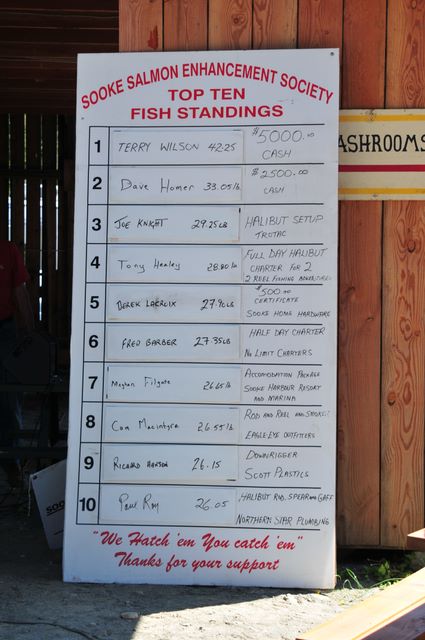 SOOKE SALMON ENHANCEMENT SOCIETY
TOP TEN
FISH STANDINGS
1 TERRY WILSON 42.25 $5000.00
CASH
2 Dave Homer 33.05lb $2500.00
CASH
3 JOE KNIGHT 29.25LB HALIBUT SETUP
TROTAC
4 Tony Healey 28.80lb FULL DAY HALIBUT
CHARTER FOR 2
2 REEL FISHING ADVENTURES
5 DEREK LACROIX 27.90LB $500.00
CERTIFICATE
SOOKE HOME HARDWARE
6 FRED BARBER 27.35LB HALF DAY CHARTER
No LIMIT CHARTERS
7 Meghan Filgate 26.65lb ACCOMODATION PACKAGE
SOOKE HARBOUR RESORT
AND MARINA
8 Cam Macintyre 26.55lb ROD AND REEL AND
EAGLE-EYE OUTFITTERS
9 RICHARD 26.15 DOWNRIGGER
SCOTT PLASTICS
10 Paul Roy 26.05 HALIBUT ROD, SPEAR AND GAFF
NORTHERN STAR PLUMBING
"We Hatch 'em You catch 'em"
Thanks for your support
ASHROOMS
SOO